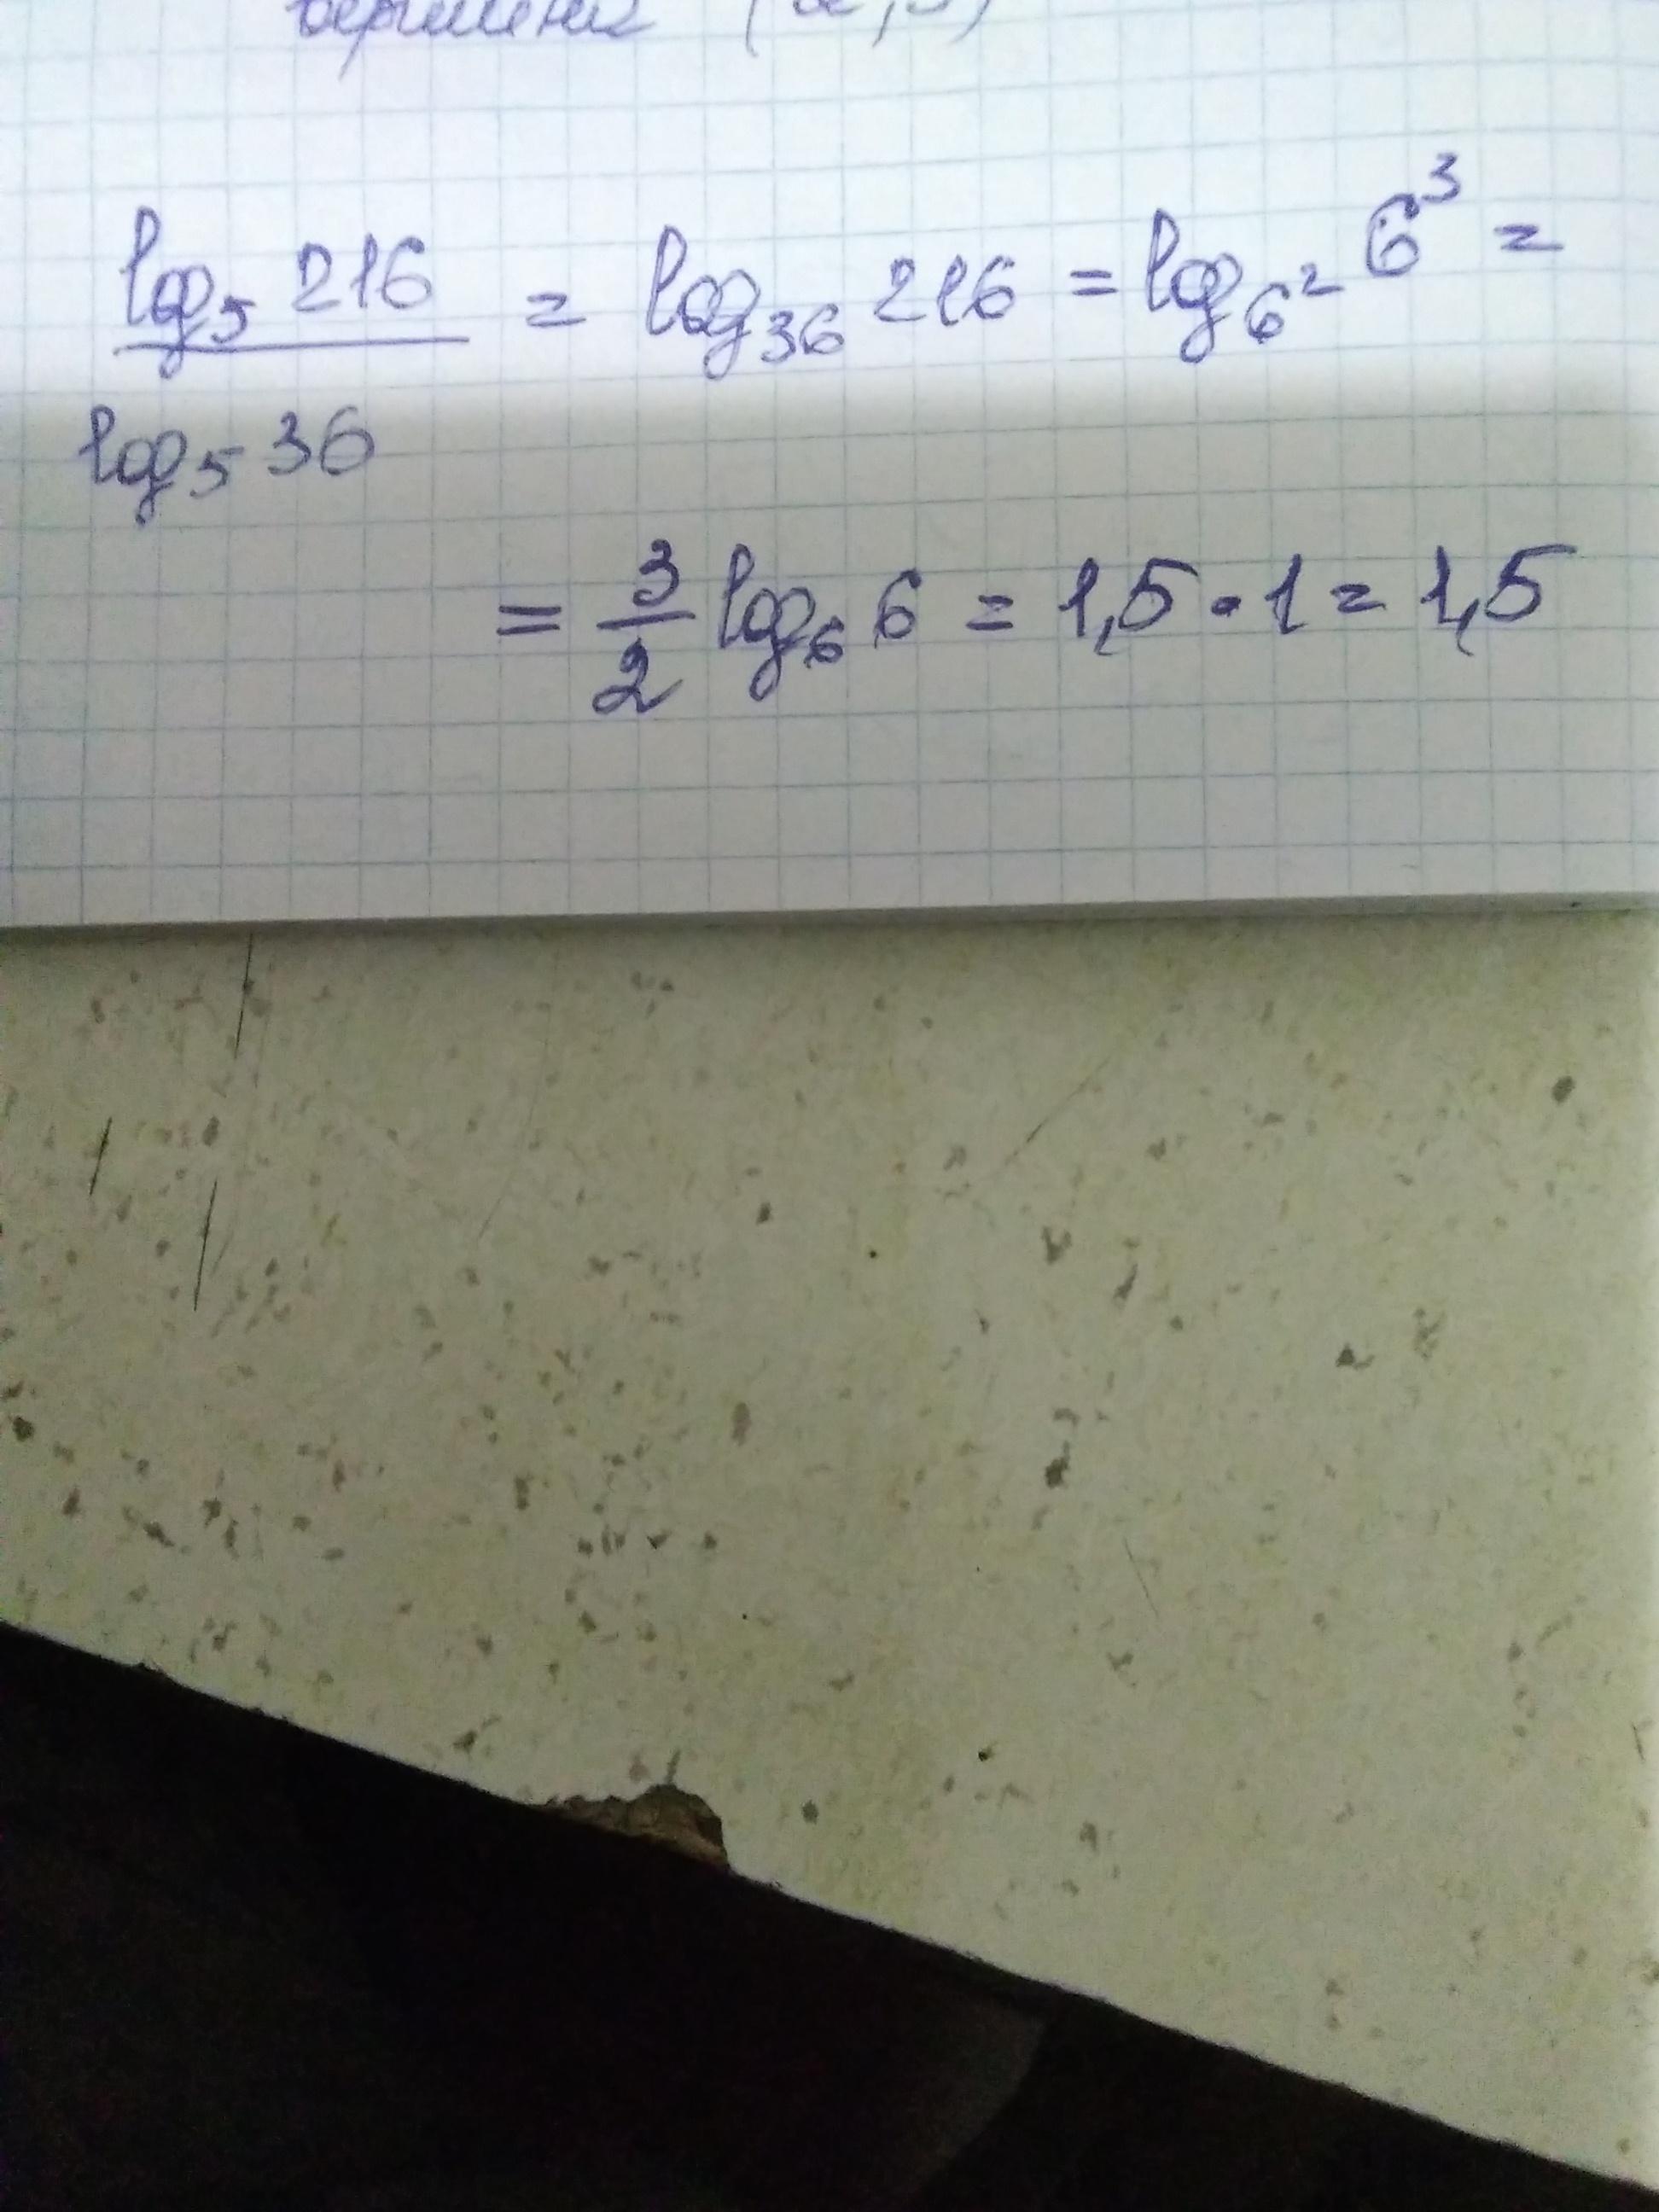 log₅ 216 / log₅ 36 = log₃₆ 216 = log₆² 6³ =
= 3/2 log₆ 6 = 1,5 · 1 = 1,5